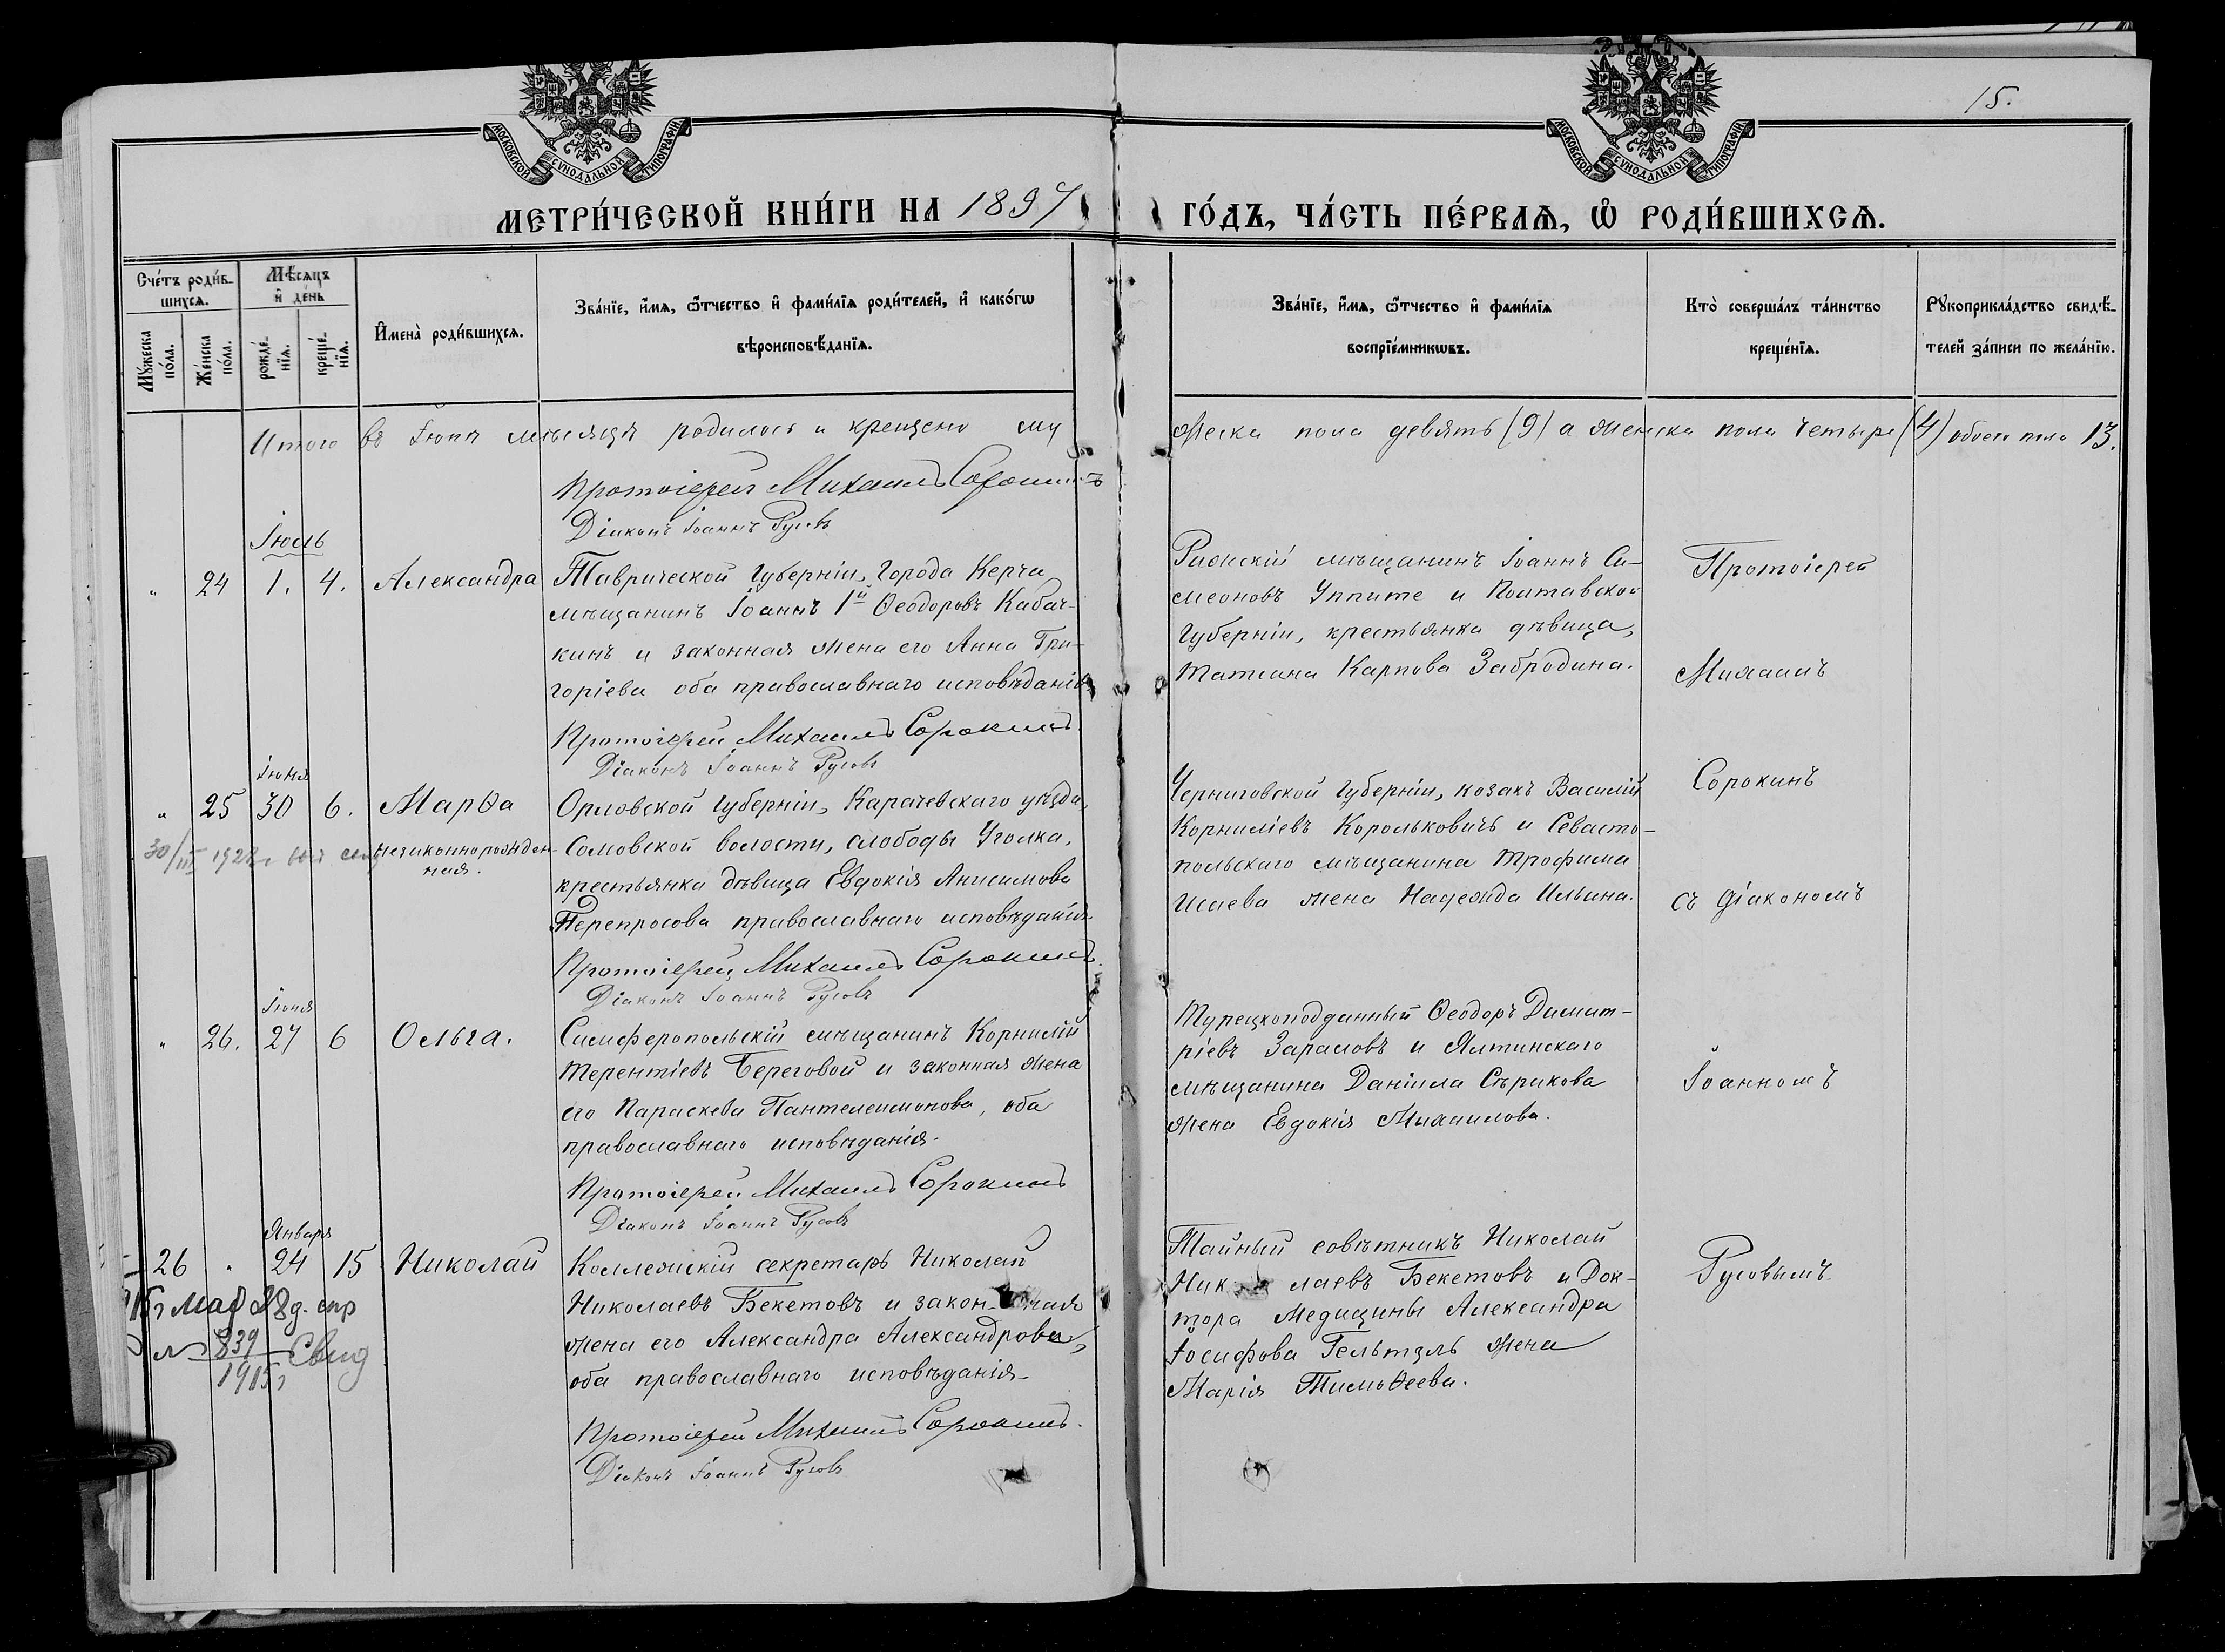 15.
МОСКОВСКОЙ СѴНОДАЛЬНОЙ ТИПОГРАФІИ
МОСКОВСКОЙ СѴНОДАЛЬНОЙ ТИПОГРАФІИ
МЕТРИ́ЧЕСКОЙ КНИ́ГИ НА 1897 ГО́ДЪ, ЧА́СТЬ ПЕ́РВАѦ, Ѡ҆ РОДИ́ВШИХСѦ.
Сче́тъ роди́в-
шихсѧ.
Мꙋ́жеска
по́ла.
Же́нска
по́ла.
Мѣ́сѧцъ
и҆ де́нь
рожде́-
нїѧ.
креще́-
нїѧ.
И҆мена̀ роди́вшихсѧ.
Зва́нїе, и҆́мѧ, ѻ҆́тчество и҆ фами́лїѧ роди́телей, и҆ како́гѡ
вѣроисповѣ́данїѧ.
Зва́нїе, и҆́мѧ, ѻ҆́тчество и҆ фами́лїѧ
воспрїе́мникѡвъ.
Кто̀ соверша́лъ та́инство
креще́нїѧ.
Рꙋкоприкла́дство свидѣ́-
телей за́писи по жела́нїю.
Итого въ Іюнѣ мѣсяцѣ родилось и крещено мужеска пола девять (9) а женска пола четыре (4) обоего пола 13.
Протоіерей Михаилъ Сорокинъ
Діаконъ Іоаннъ Русовъ
Іюль
" 24 1. 4. Александра
Таврической губерніи, города Керчи
мѣщанинъ Іоаннъ 1й Ѳеодоровъ Кабач-
кинъ и законная жена его Анна Гри-
горіева оба православнаго исповѣданія
Протоіерей Михаилъ Сорокинъ
Діаконъ Іоаннъ Русовъ
Рижскій мѣщанинъ Іоаннъ Си-
меоновъ Уппите и Полтавской
губерніи, крестьянка дѣвица,
Татіана Карпова Забродина.
Протоіерей
Михаилъ
Сорокинъ
съ діакономъ
Іоанномъ
Русовымъ
Іюня
" 25 30 6. Марѳа
незаконнорожден-
ная.
30/III 1922г.
Орловской губерніи, Карачевскаго уѣзда,
Сомовской волости, слободы Уголка,
крестьянка дѣвица Евдокія Анисимова
Перепросова православнаго исповѣданія.
Протоіерей Михаилъ Сорокинъ.
Діаконъ Іоаннъ Русовъ
Черниговской губерніи, козакъ Василій
Корниліевъ Корольковичъ и Севасто-
польскаго мѣщанина Трофима
Исаева жена Надежда Ильина.
Іюня
" 26. 27 6 Ольга.
Симферопольскій мѣщанинъ Корнилій
Терентіевъ Береговой и законная жена
его Параскева Пантелеимонова, оба
православнаго исповѣданія.
Протоіерей Михаилъ Сорокинъ
Діаконъ Іоаннъ Русовъ
Турецкоподданный Ѳеодоръ Димит-
ріевъ Зарамовъ и Ялтинскаго
мѣщанина Даніила Сѣрикова
жена Евдокія Михаилова.
Января
26 " 24 15 Николай
мая 28 д.
№ 839
1915г Свид
Коллежскій секретарь Николай
Николаевъ Бекетовъ и законная
жена его Александра Александрова,
оба православнаго исповѣданія.
Протоіерей Михаилъ Сорокинъ.
Діаконъ Іоаннъ Русовъ
Тайный совѣтникъ Николай
Николаевъ Бекетовъ и Док-
тора Медицины Александра
Іосифова Гельтцль жена
Марія Тимоѳеева.